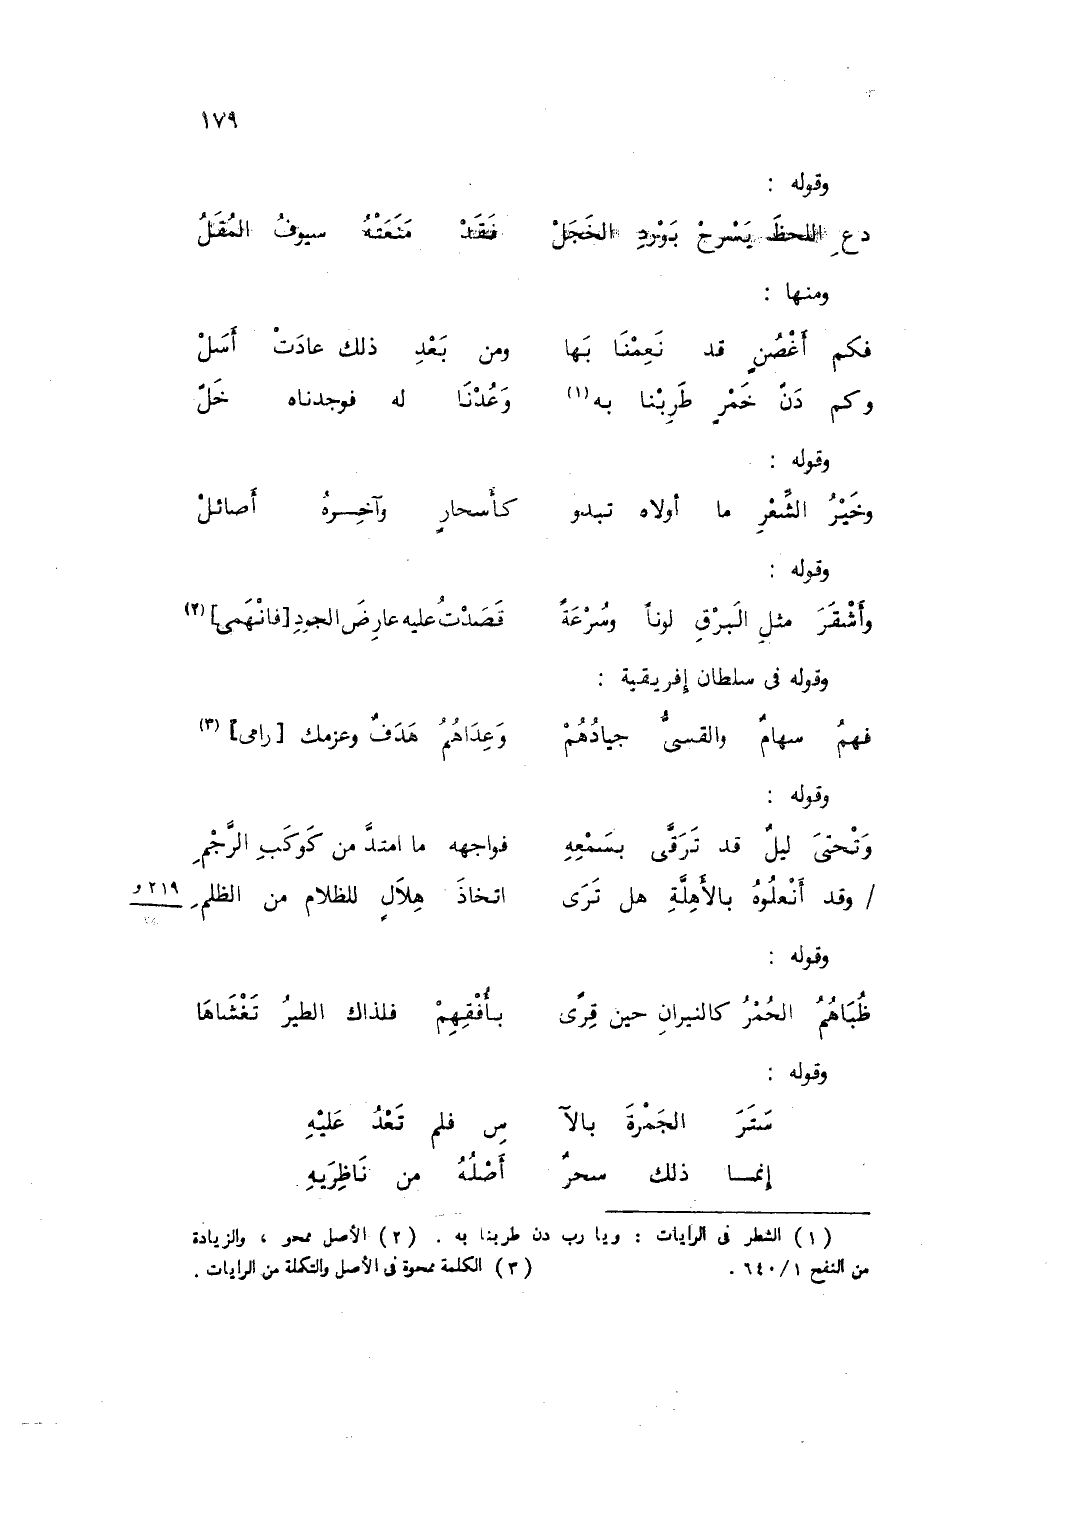 ١٧٩
وقوله :
دعِ اللحظَ يَسْرحْ بوَرْدِ الخَجَلْ فَقَدْ مَنَعَتْهُ سيوفُ المُقَلْ
ومنها :
فكم أَغْصُنٍ قد نَعِمْنَا بَها ومن بَعْدِ ذلك عادَتْ أَسَلْ
وكم دَنّ خَمْرٍ طَرِبْنا به(١) وَعُدْنَا له فوجدناه خَلّ
وقوله :
وخَيْرُ الشِّعْرِ ما أولاه تبدو كأَسحارٍ وآخِرهُ أَصائلْ
وقوله :
وأَشْقَرَ مثلِ البَرْقِ لوناً وسُرْعَةً قَصَدْتُ عليه عارِضَ الجودِ [فانْهَمى](٢)
وقوله فى سلطان إفريقية :
فهمُ سهامٌ والقسىُّ جيادُهُمْ وَعِدَاهُمُ هَدَفٌ وعزمك [رامى](٣)
وقوله :
وَتْحتىَ ليلٌ قد تَرَقَّى بسَمْعِهِ فواجهه ما امتدَّ من كَوكَبِ الرَّجْمِ
/ وقد أَنْعلُوهُ بالأَهِلَّةِ هل تَرَى اتخاذَ هِلَالٍ للظلام من الظلمِ ٢١٩ و
وقوله :
ظُبَاهُمُ الحُمْرُ كالنيرانِ حين قِرًى بأُفْقِهِمْ فلذاك الطيرُ تَغْشَاهَا
وقوله :
سَتَرَ الجَمْرةَ بالآ سِ فلم تَعْدُ عَلَيْهِ
إنما ذلك سحرٌ أَصْلُهُ من نَاظِرَيهِ
(١) الشطر فى الرايات : ويا رب دن طربنا به . (٢) الأصل ممحو ، والزيادة
من النفح ٦٤٠/١ . (٣) الكلمة ممحوة فى الأصل والتكملة من الرايات .